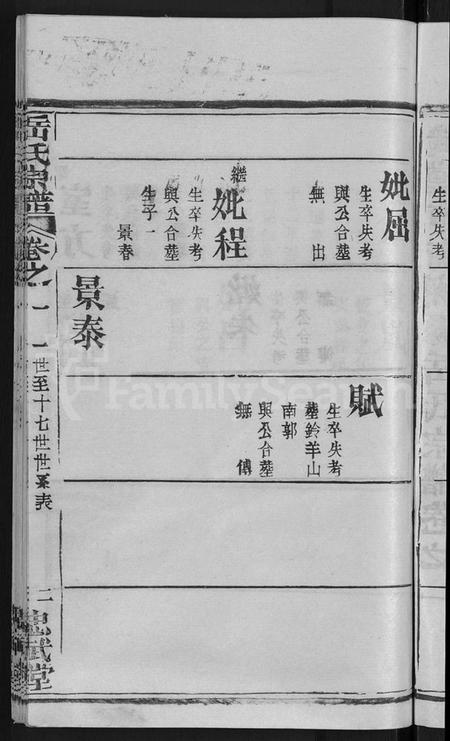 妣屈
生卒失考
與公合墓
無出
繼妣程
生卒失考
與公合墓
生子一
景春
景泰
賦
生卒失考
墓鈴羊山
南郭
與公合墓
無傳
岳氏宗譜
卷之一
一世至十七世世系表
二
忠武堂
生卒失考
FamilySearch